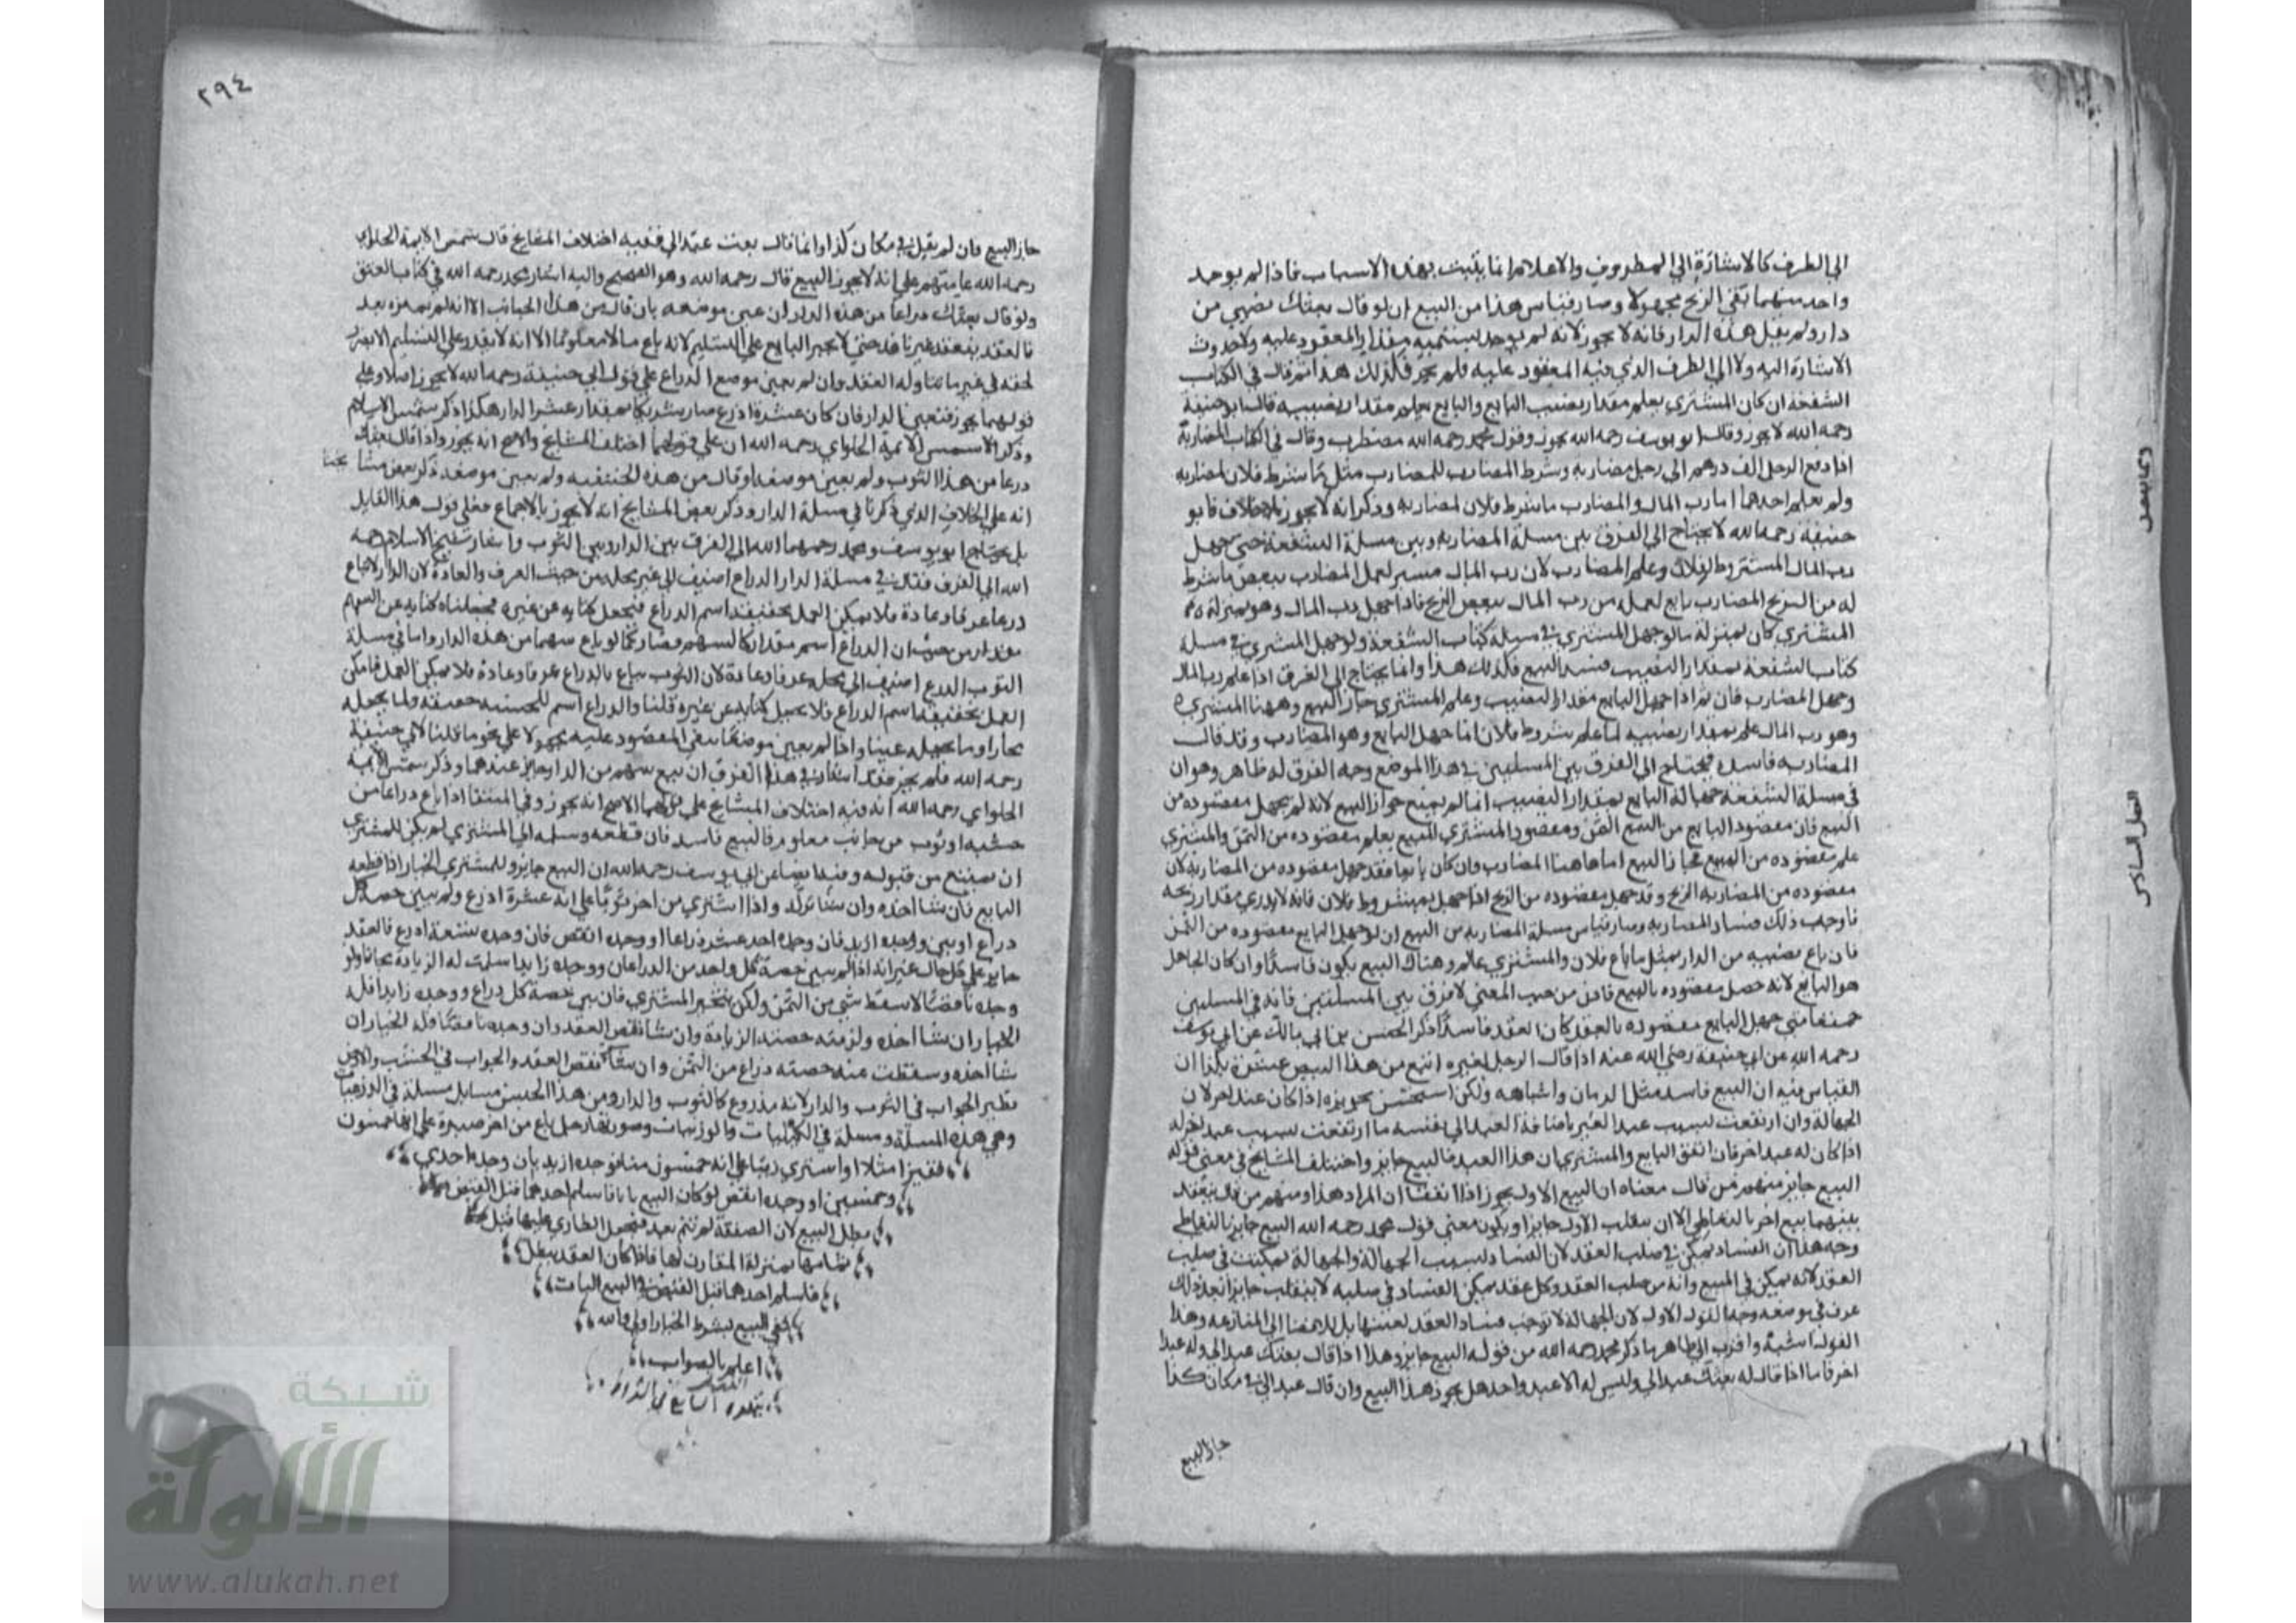 الى الظرف كالاشارة الى المظروف والاعلام انما يثبت بهذه الاسباب فاذا لم يوجد
واحد منهما بقي الربح مجهولا وصار قياس هذا من البيع ان لو قال بعتك نصيبي من
دار ولم يقل هذه الدار فانه لا يجوز لانه لم يوجد تسمية مقدار المعقود عليه ولا
الاشارة اليه ولا الى الظرف الذي فيه المعقود عليه فلم يجز فكذلك هذا ثم قال في الكتاب
الشفعة ان كان المشتري يعلم مقدار نصيب البايع والبايع يعلم مقدار نصيبه قال ابو حنيفة
رحمه الله لا يجوز وقال ابو يوسف رحمه الله يجوز وقول محمد رحمه الله مضطرب وقال في الكتاب المضاربة
اذا دفع الرجل الف درهم الى رجل مضاربة وشرط المضارب للمضارب مثل ما شرط فلان لمضاربه
ولم يعلم احدهما اما رب المال والمضارب ما شرط فلان لمضاربه وذكر انه لا يجوز بلا خلاف فابو
حنيفة رحمه الله لا يحتاج الى الفرق بين مسلة المضاربة وبين مسلة الشفعة جهل
رب المال المشروط لفلان وعلم المضارب لان رب المال لعمل المضارب ببعض ما شرط
له من الربح المضارب بايع لعمله من رب المال ببعض الربح فاذا جهل رب المال وهو بمنزلة
المشتري كان بمنزلة ما لو جهل المشتري في مسلة كتاب الشفعة ولو جهل المشتري في مسلة
كتاب الشفعة بمقدار النصيب فسد البيع فكذلك هذا وانما يحتاج الى الفرق اذا علم رب المال
وجهل المضارب فان ثم اذا جهل البايع مقدار النصيب وعلم المشتري جاز البيع وههنا المشتري
وهو رب المال علم بمقدار نصيبه لما علم بشروط فلان انما جهل البايع وهو المضارب وقد قال
المضاربة فاسدة فيحتاج الى الفرق بين المسلتين في هذا الموضع وجه الفرق له ظاهر وهو ان
في مسلة الشفعة جهالة البايع بمقدار النصيب انما لم يمنع جواز البيع لانه لم يجهل مقصوده من
البيع فان مقصود البايع من البيع الثمن ومقصود المشتري المبيع يعلم مقصوده من الثمن والمشتري
علم مقصوده من المبيع فجاز البيع اما هاهنا المضارب وان كان بايعا فقد جهل مقصوده من المضاربة لان
مقصوده من المضاربة الربح وقد جهل مقصوده من الربح اذا جهل بمشروط فلان فانه لا يدري مقدار ربحه
فاوجب ذلك فساد المضاربة وصار قياس مسلة المضاربة من البيع ان لو جهل البايع مقصوده من الثمن
فان باع نصيبه من الدار بمثل ما باع فلان والمشتري عالم وهناك البيع يكون فاسدا وان كان الجاهل
هو البايع لانه حصل مقصوده بالبيع فاذن من حيث المعنى لا فرق بين المسلتين فانه في المسلتين
جميعا متى جهل البايع مقصوده بالعقد كان العقد فاسدا ذكر الحسن بن ابي مالك عن ابي يوسف
رحمه الله عن ابي حنيفة رضي الله عنه اذا قال الرجل لغيره ابيع من هذا البيض عشرة بكذا ان
القياس فيه ان البيع فاسد مثل الرمان واشباهه ولكن استحسن تجويزه اذا كان عند اخر لان
الجهالة وان ارتفعت بسبب عبد الغير العبد الى نفسه ما ارتفعت بسبب عبد اخر له
اذا كان له عبد اخر فان اتفق البايع والمشتري ان هذا العبد فالبيع جايز واختلف المشايخ في معنى قوله
البيع جايز منهم من قال معناه ان البيع الاول يجوز اذا اتفقا ان المراد هذا ومنهم من قال ينعقد
بينهما بيع اخر بالتعاطي الا ان ينقلب الاول جايزا ويكون معنى قول محمد رحمه الله البيع جايز بالتعاطي
وجه هذا ان الفساد تمكن في صلب العقد لان الفساد بسبب الجهالة والجهالة تمكنت في صلب
العقد لانه تمكن في المبيع وانه من صلب العقد وكل عقد تمكن الفساد في صلبه لا ينقلب جايزا بعد ذلك
عرف في موضعه وجه القول الاول لان الجهالة لا توجب فساد العقد لعينها بل للافضا الى المنازعة وهذا
القول اشبه واقرب الى ظاهر ما ذكر محمد رحمه الله من قوله البيع جايز وهذا اذا قال بعتك عبدا لي وله عبد
اخر فاما اذا قال له بعتك عبدا لي وليس له الا عبد واحد هل يجوز هذا البيع وان قال عبدا لي في مكان كذا
جاز البيع
٢٩٤
جاز البيع وان لم يقل في مكان كذا وانما قال بعت عبدا لي ففيه اختلاف المشايخ قال شمس الايمة الحلواي
رحمه الله عامتهم على انه لا يجوز البيع قال رحمه الله وهو الصحيح واليه اشار محمد رحمه الله في كتاب العتق
ولو قال بعتك ذراعا من هذه الدار ان عين موضعه بان قال من هذا الجانب الا انه لم يميزه بعد
فالعقد منعقد غير نافذ حتى لا يجبر البايع على التسليم لانه باع مالا معلوما الا انه لا يقدر على التسليم الا بضرر
لحقه في غير ما تناوله العقد وان لم يعين موضع الذراع على قول ابي حنيفة رحمه الله لا يجوز اصلا وعلى
قولهما يجوز فتعين الدار فان كان عشرة اذرع صار شريكا بمقدار عشر الدار هكذا ذكر شمس الاسلام
وذكر شمس الايمة الحلواي رحمه الله ان على قولهما اختلف المشايخ والاصح انه يجوز واذا قال بعتك
ذرعا من هذا الثوب ولم يعين موضعه او قال من هذه الخشبة ولم يعين موضعه ذكر بعض مشايخنا
انه على الخلاف الذي ذكرنا في مسلة الدار وذكر بعض المشايخ انه لا يجوز بالاجماع فعلى قول هذا القايل
يحتاج ابو يوسف ومحمد رحمهما الله الى الفرق بين الدار وبين الثوب واشار شيخ الاسلام رحمه
الله الى الفرق فقال في مسلة الدار الذراع اضيف الى غير محله من حيث العرف والعادة لان الدار لا تباع
ذرعا عرفا وعادة فلا يمكن العمل بحقيقة اسم الذراع فيجعل كناية عن غيره فجعلناه كناية عن السهم
من حيث ان الذراع اسم مقدار كالسهم فصار كما لو باع سهما من هذه الدار واما في مسلة
الثوب الذرع اضيف الى محله عرفا وعادة لان الثوب يباع بالذراع عرفا وعادة فامكن
العمل بحقيقة اسم الذراع فلا يجعل كناية عن غيره قلنا والذراع اسم
واذا لم يعين موضعا بقي المعقود عليه مجهولا على نحو ما قلنا لابي حنيفة
رحمه الله فلم يجز فقد اشار في هذا الفرق ان بيع سهم من الدار جايز عندهما وذكر شمس الايمة
الحلواي رحمه الله انه فيه اختلاف المشايخ على قولهما الاصح انه يجوز وفي المنتقا اذا باع ذراعا من
خشبة او ثوب من جانب معلوم فالبيع فاسد فان قطعه وسلمه الى المشتري لم يكن للمشتري
ان يمتنع من قبوله وفيه ايضا عن ابي يوسف رحمه الله ان البيع جايز وللمشتري الخيار اذا قطعه
البايع فان شا اخذه وان شا ترك واذا اشترى من اخر ثوبا على انه عشرة اذرع ولم يبين حصة كل
ذراع او بين ووجده ازيد فان وجده احد عشر ذراعا او وجده انقص فان وجده تسعة اذرع فالعقد
جايز على كل حال غير انه اذا لم يبين حصة كل واحد من الذرعان ووجده زايدا سلمت له الزيادة مجانا ولو
وجده ناقصا لا يسقط شي من الثمن ولكن يتخير المشتري فان بين حصة كل ذراع ووجده زايدا فله
الخيار ان شا اخذه ولزمته حصة الزيادة وان شا نقض العقد وان وجده ناقصا فله الخيار ان
شا اخذه وسقطت عنه حصة ذراع من الثمن وان شا نقض العقد والجواب في الخشب والارض
نظير الجواب في الثوب والدار لانه مذروع كالثوب والدار ومن هذا الجنس مسايل مسلة في الذرعيات
وهي هذه المسلة ومسلة في الكيليات والوزنيات وصورتها رجل باع من اخر صبرة على انها خمسون
قفيزا مثلا او اشترى زيتا على انه خمسون منا فوجده ازيد بان وجده احدى
وخمسين او وجده انقص لو كان البيع باتا فاسلم احدهما قبل القبض
بطل البيع لان الصفقة لم تتم بعد فيجعل الطاري عليها قبل
تمامها بمنزلة المقارن لها فاذا كان العقد يبطل
فاسلم احدهما قبل القبض في البيع البات
ففي البيع بشرط الخيار اولى والله
اعلم بالصواب
يتلوه الفصل السابع في الشروط
شبكة
الألوكة
www.alukah.net